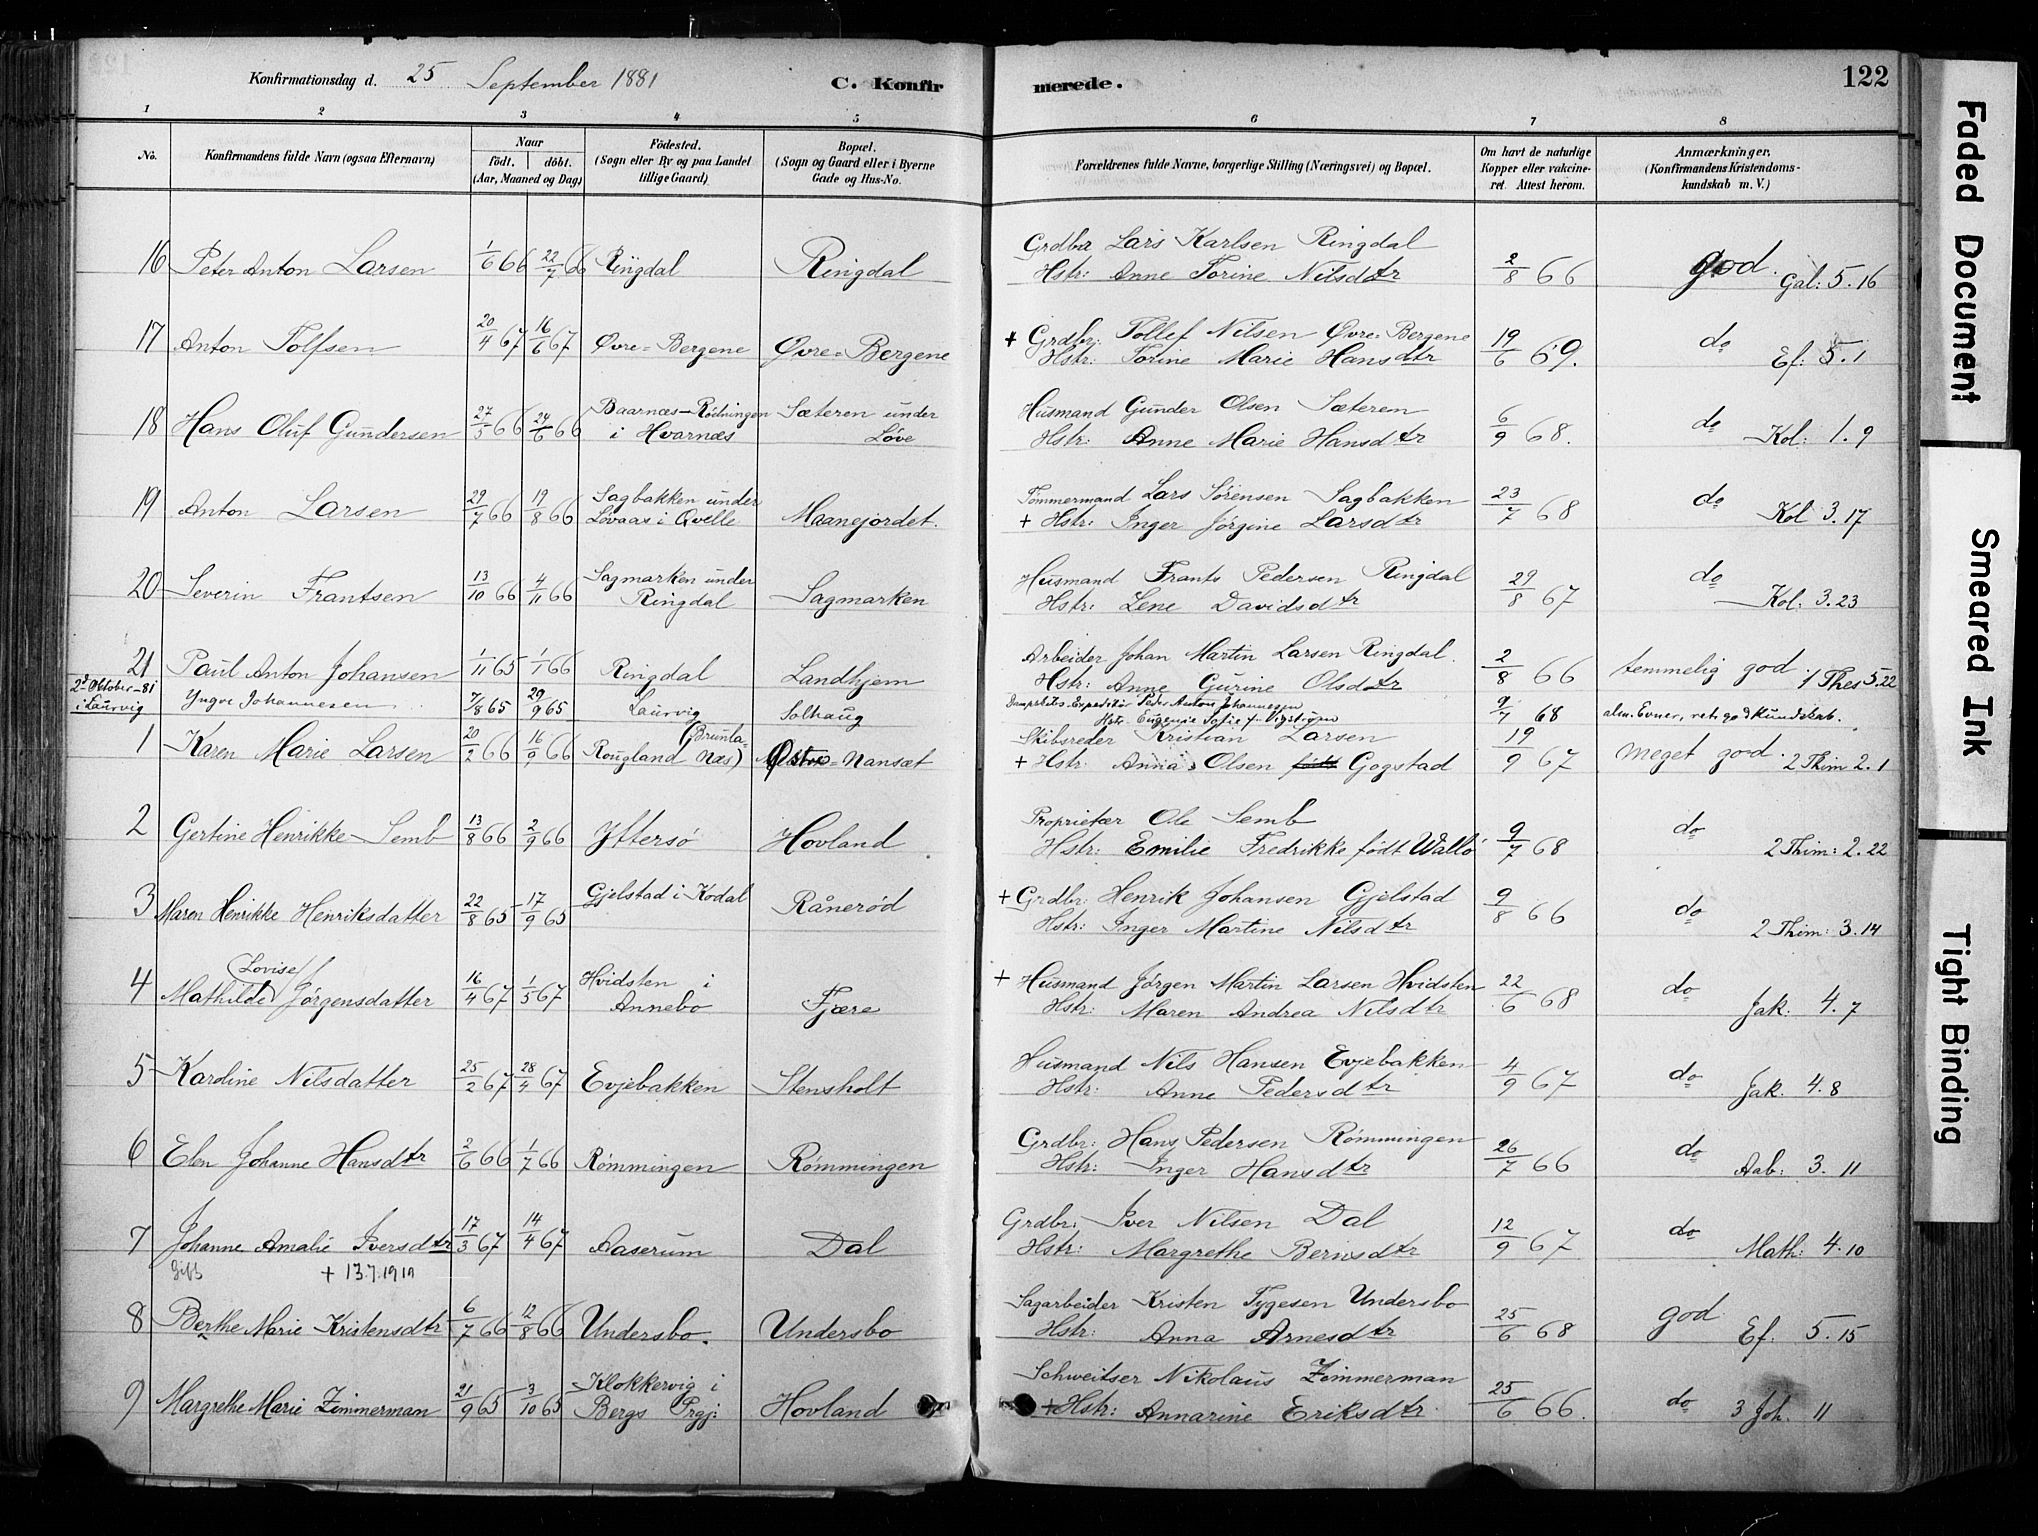 Konfirmationsdag d. 25 September 1881 C. Konfir merede. 122
1 2 3 4 5 6 7 8
No. Konfirmandens fulde Navn (ogsaa Efternavn) Naar födt. döbt. (Aar, Maaned og Dag) Födested. (Sogn eller By og paa Landet tillige Gaard) Bopæl. (Sogn og Gaard eller i Byerne Gade og Hus-No. Forældrenes fulde Navne, borgerlige Stilling (Næringsvei) og Bopæl. Om havt de naturlige Kopper eller vakcineret. Attest herom. Anmærkninger, (Konfirmandens Kristendomskundskab m. V.)
16 Peter Anton Larsen 1/6 66 22/7 66 Ringdal Ringdal Grdbr Lars Karlsen Ringdal
Hstr: Anne Torine Nilsdtr 2/8 66 god. Gal: 5.16
17 Anton Tolfsen 20/4 67 16/6 67 Øvre-Bergene Øvre-Bergene + Grdbr: Tollef Nilsen Øvre-Bergene
Hstr: Torine Marie Hansdtr 19/6 69. do Ef: 5.1
18 Hans Oluf Gundersen 27/5 66 24/6 66 Baarnæs-Rødningen i Hvarnæs Sæteren under Løve Husmand Gunder Olsen Sæteren
Hstr: Anne Marie Hansdtr 6/9 68. do Kol: 1.9
19 Anton Larsen 29/7 66 19/8 66 Sagbakken under Løvaas i Qvelle Maanejordet. Tømmermand Lars Sørensen Sagbakken
+ Hstr: Inger Jørgine Larsdtr 23/7 68 do Kol 3.17
20 Severin Frantsen 13/10 66 4/11 66 Sagmarken under Ringdal Sagmarken Husmand Frants Pedersen Ringdal
Hstr: Lene Davidsdtr 29/8 67 do Kol: 3.23
21 Paul Anton Johansen 1/11 65 1/1 66 Ringdal Landhjem Arbeider Johan Martin Larsen Ringdal.
Hstr: Anne Gurine Olsdtr 2/8 66 temmelig god. 1 Thes 5.22
2d Oktober-81 i Laurvig Yngvar Johannesen 7/8 65 29/9 65 Laurvig Solhaug Dampskibs.Expeditør Peder Anton Johannesen
Hstr. Eugenie Sofie f. Vigstrøm 9/7 68 alm. Evner, ret god Kundskab.
1 Karen Marie Larsen 20/2 66 16/9 66 Rougland (Brunlanæs) Østre-Nanset Skibsreder Kristian Larsen
+ Hstr: Anna Olsen født Gogstad 19/9 67 meget god. 2 Thim 2.1
2 Gertine Henrikke Semb 13/8 66 2/9 66 Yttersø Hovland Proprietær Ole Semb
Hstr: Emilie Fredrikke født Wallø 9/7 68 do 2 Thim: 2.22
3 Maren Henrikke Henriksdatter 22/8 65 17/9 65 Gjelstad i Kodal Rånerød + Grdbr: Henrik Johansen Gjelstad
Hstr: Inger Martine Nilsdtr 9/8 66 do 2 Thim: 3.14
4 Mathilde (Lovise) Jørgensdatter 16/4 67 1/5 67 Hvidsten i Annebo Fjære + Husmand Jørgen Martin Larsen Hvidsten
Hstr: Maren Andrea Nilsdtr 22/6 68 do Jak. 4.7
5 Karoline Nilsdatter 25/2 67 28/4 67 Evjebakken Stensholt Husmand Nils Hansen Evjebakken
Hstr: Anne Pedersdtr 4/9 67 do Jak. 4.8
6 Elen Johanne Hansdtr 2/6 66 1/7 66 Rømmingen Rømmingen Grdbr: Hans Pedersen Rømmingen
Hstr: Inger Hansdtr 26/7 66 do Aab: 3.11
7 Johanne Amalie Iversdtr 17/3 67 14/4 67 Aaserum Dal Grdbr: Iver Nilsen Dal
Gift + 13.7.1919 Hstr: Margrethe Berntsdtr 12/9 67 do Math: 4.10
8 Berthe Marie Kristensdtr 6/7 66 12/8 66 Undersbo. Undersbo Sagarbeider Kristen Tygesen Undersbo
Hstr: Anna Arnesdtr 25/6 68 god Ef. 5.15
9 Margrethe Marie Zimmerman 21/9 65 3/10 65 Klokkervig i Bergs Prgj: Hovland Schweitser Nikolaus Zimmerman
+ Hstr: Annarine Eriksdtr. 25/6 66. do 3 Joh. 11
Faded Document
Smeared Ink
Tight Binding